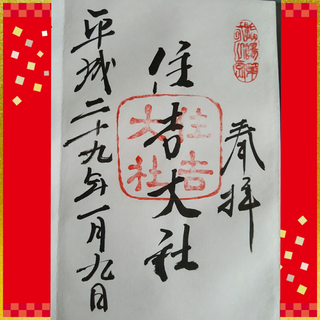 奉拝
住吉大社
住吉
大社
平成二十九年一月九日